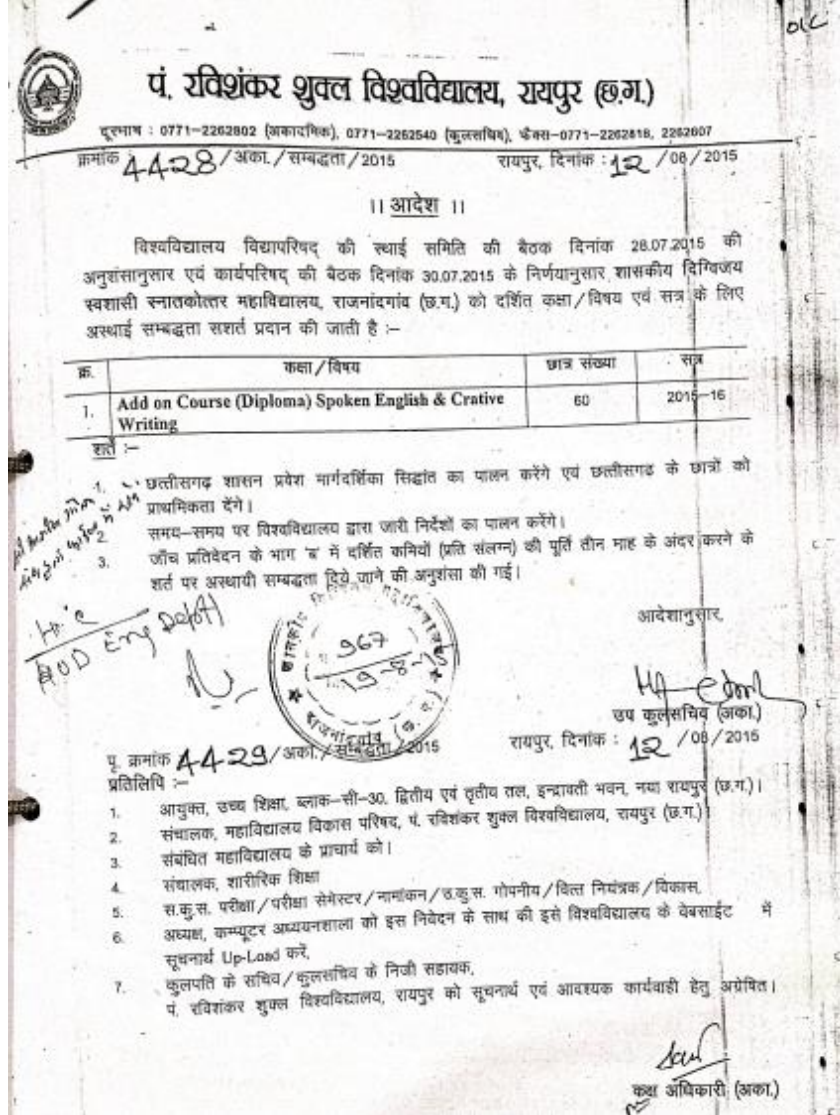 OLC
पं. रविशंकर शुक्ल विश्वविद्यालय, रायपुर (छ.ग.)
दूरभाष : 0771-2262802 (अकादमिक), 0771-2262540 (कुलसचिव), फैक्स-0771-2262818, 2262607
क्रमांक 4428/अका./सम्बद्धता/2015 रायपुर, दिनांक : 12 /08/2015
।। आदेश ।।
विश्वविद्यालय विद्यापरिषद् की स्थाई समिति की बैठक दिनांक 28.07.2015 की
अनुशंसानुसार एवं कार्यपरिषद् की बैठक दिनांक 30.07.2015 के निर्णयानुसार शासकीय दिग्विजय
स्वशासी स्नातकोत्तर महाविद्यालय, राजनांदगांव (छ.ग.) को दर्शित कक्षा/विषय एवं सत्र के लिए
अस्थाई सम्बद्धता सशर्त प्रदान की जाती है :–
क्र. कक्षा/विषय छात्र संख्या सत्र
1. Add on Course (Diploma) Spoken English & Crative 60 2015-16
Writing
शर्ते :–
1. छत्तीसगढ़ शासन प्रवेश मार्गदर्शिका सिद्धांत का पालन करेंगे एवं छत्तीसगढ के छात्रों को
प्राथमिकता देंगे।
2 समय–समय पर विश्वविद्यालय द्वारा जारी निर्देशों का पालन करेंगे।
3. जाँच प्रतिवेदन के भाग 'ब' में दर्शित कमियों (प्रति संलग्न) की पूर्ति तीन माह के अंदर करने के
शर्त पर अस्थायी सम्बद्धता दिये जाने की अनुशंसा की गई।
HOD Eng Deptt
967
19-8-
राजनांदगांव (छ. ग.)
आदेशानुसार,
उप कुलसचिव (अका.)
पृ. क्रमांक 4429/अका./सम्बद्धता/2015 रायपुर, दिनांक : 12 /08/2015
प्रतिलिपि :–
1. आयुक्त, उच्च शिक्षा, ब्लाक–सी–30, द्वितीय एवं तृतीय तल, इन्द्रावती भवन, नया रायपुर (छ.ग.)।
2. संचालक, महाविद्यालय विकास परिषद, पं. रविशंकर शुक्ल विश्वविद्यालय, रायपुर (छ.ग.)
3. संबंधित महाविद्यालय के प्राचार्य को।
4. संचालक, शारीरिक शिक्षा
5. स.कु.स. परीक्षा/परीक्षा सेमेस्टर/नामांकन/उ.कु.स. गोपनीय/वित्त नियंत्रक/विकास,
6. अध्यक्ष, कम्प्यूटर अध्ययनशाला को इस निवेदन के साथ की इसे विश्वविद्यालय के वेबसाईट में
सूचनार्थ Up-Load करें,
7. कुलपति के सचिव/कुलसचिव के निजी सहायक,
पं. रविशंकर शुक्ल विश्वविद्यालय, रायपुर को सूचनार्थ एवं आवश्यक कार्यवाही हेतु अग्रेषित।
कक्ष अधिकारी (अका.)